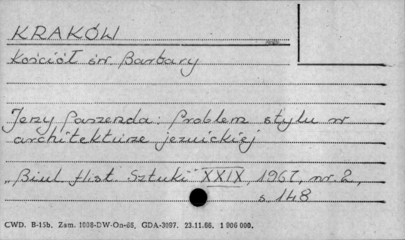 KRAKÓW
Kościół św Barbary
Jerzy Paszenda: Problem stylu w
architekturze jezuickiej
„Biul. Hist. Sztuki" XXIX, 1967, nr. 2,
s. 148
CWD. B-15b. Zam. 1008-DW-On-66, GDA-3097. 23.11.66. 1 906 000.